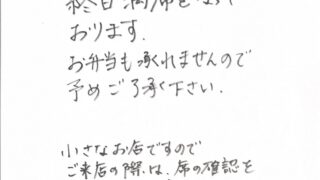 終日満席となって
おります.
お弁当も承くれませんので
予めご了承く下さい.
小さなお店ですので
ご来店の際は、席の確認を